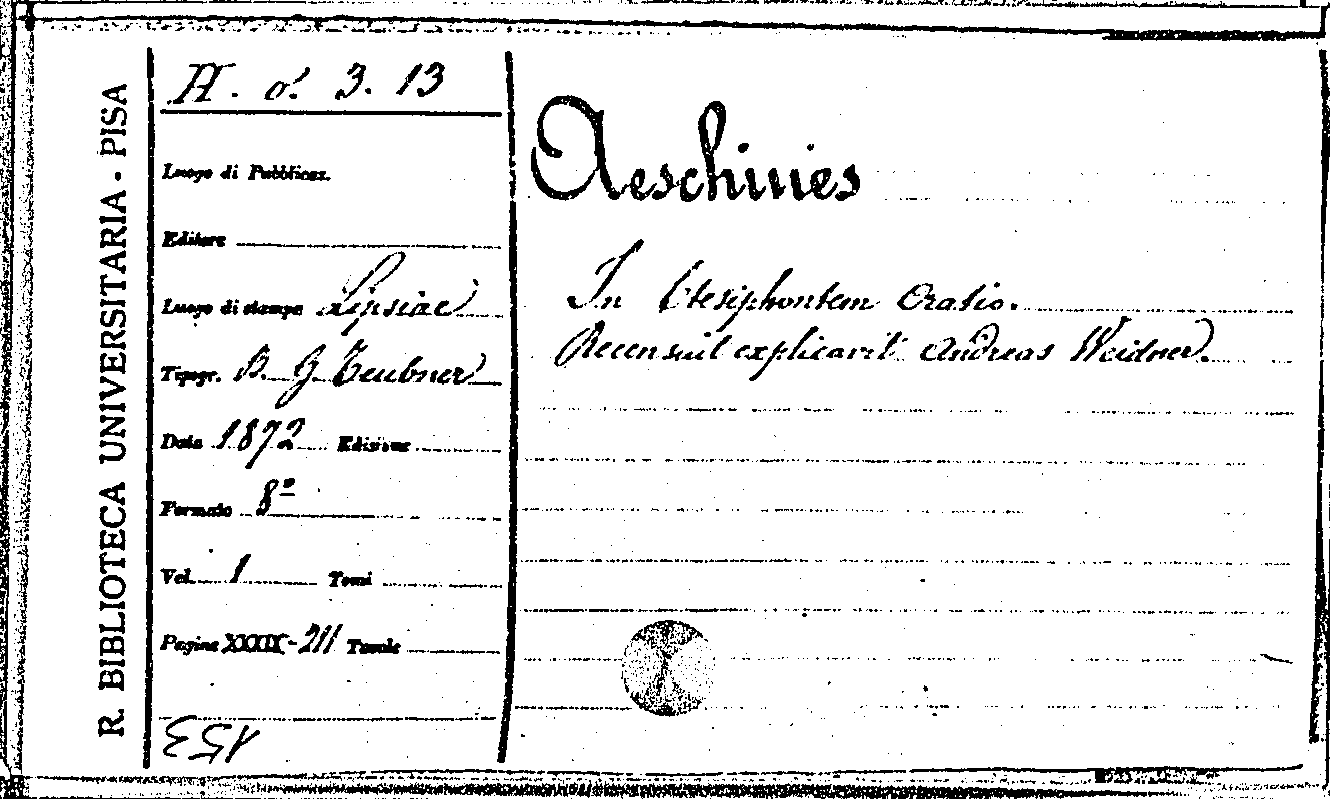 R. BIBLIOTECA UNIVERSITARIA - PISA
H. o. 3. 13
Luogo di Pubblicaz.
Editore
Luogo di stampa Lipsiae
Tipogr. B. G Teubner
Data 1872 Edizione
Formato 8°
Vol. 1 Tomi
Pagine XXXIX-211 Tavole
153
Aeschines
In Ctesiphontem Oratio.
Recensuit explicavit Andreas Weidner.